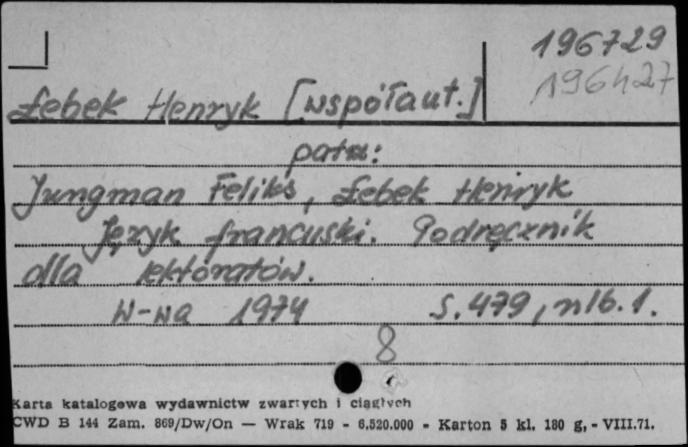 196729
196427
Łebek Henryk [współaut.]
patrz:
Jungman Feliks, Łebek Henryk
Język francuski. Podręcznik
dla lektoratów.
W-wa 1974 S. 479, nlb. 1.
8
Karta katalogowa wydawnictw zwartych i ciągłych
CWD B 144 Zam. 869/Dw/On — Wrak 719 - 6.520.000 - Karton 5 kl. 180 g, - VIII.71.